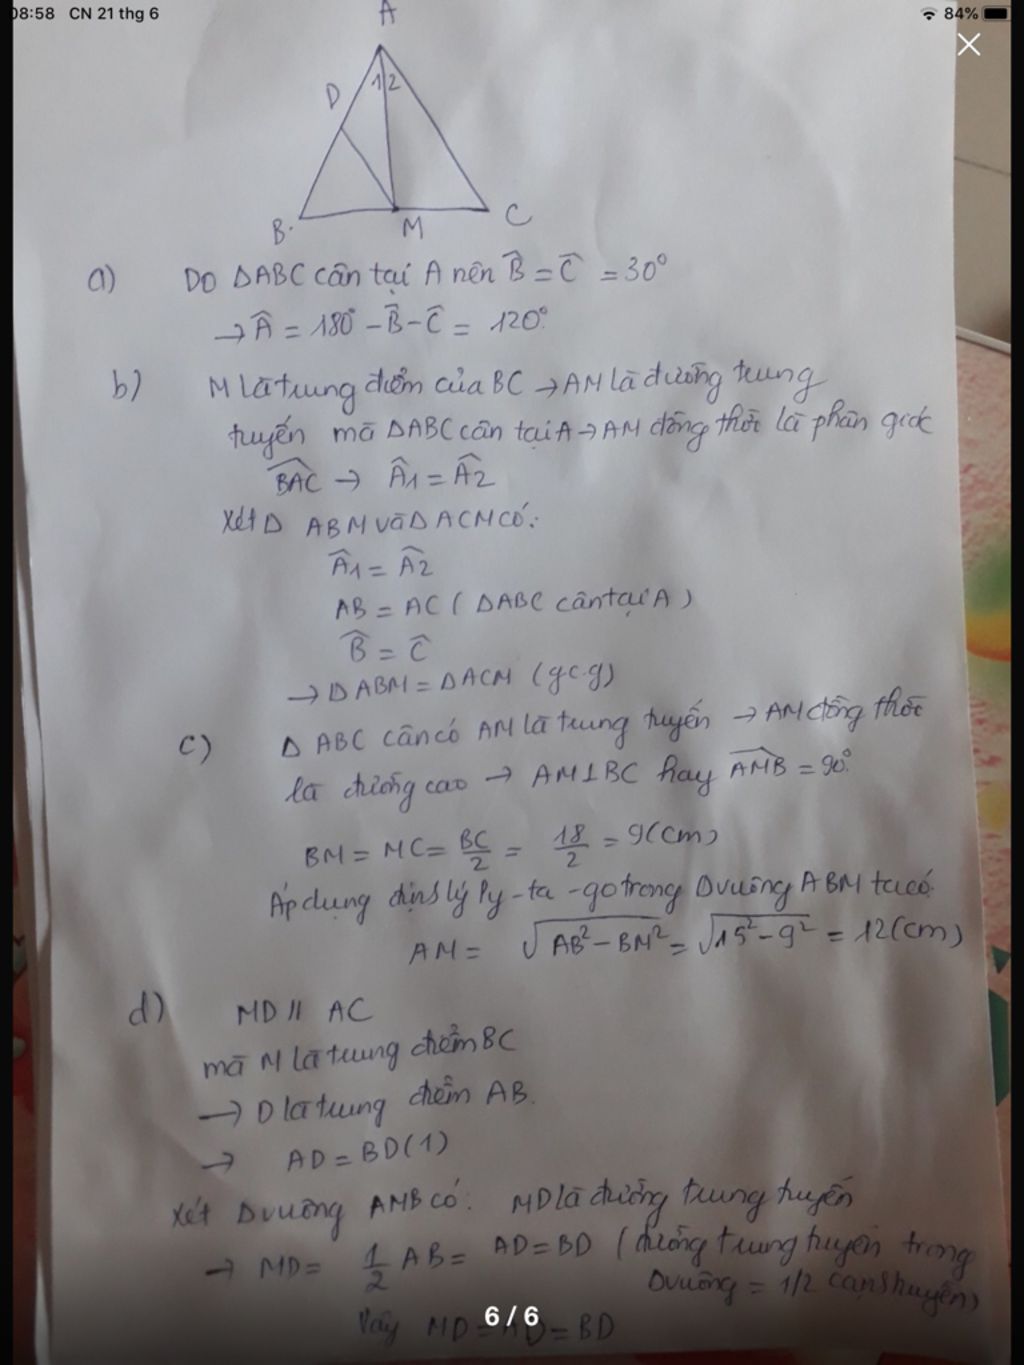 08:58 CN 21 thg 6
84%
A
1 2
D
B
M
C
a) Do ΔABC cân tại A nên B̂ = Ĉ = 30°
→ Â = 180° - B̂ - Ĉ = 120°.
b) M là trung điểm của BC → AM là đường trung
tuyến mà ΔABC cân tại A → AM đồng thời là phân giác
BAC → Â1 = Â2
Xét Δ ABM và Δ ACM có:
Â1 = Â2
AB = AC (ΔABC cân tại A)
B̂ = Ĉ
→ Δ ABM = Δ ACM (g.c.g)
c) Δ ABC cân có AM là trung tuyến → AM đồng thời
là đường cao → AM ⊥ BC hay AMB = 90°.
BM = MC = BC/2 = 18/2 = 9(cm)
Áp dụng định lý Py-ta-go trong Δ vuông ABM ta có:
AM = √(AB² - BM²) = √(15² - 9²) = 12(cm)
d) MD // AC
mà M là trung điểm BC
→ D là trung điểm AB.
→ AD = BD (1)
Xét Δ vuông AMB có: MD là đường trung tuyến
→ MD = 1/2 AB = AD = BD (đường trung tuyến trong
Δ vuông = 1/2 cạnh huyền)
Vậy MD = AD = BD
6 / 6